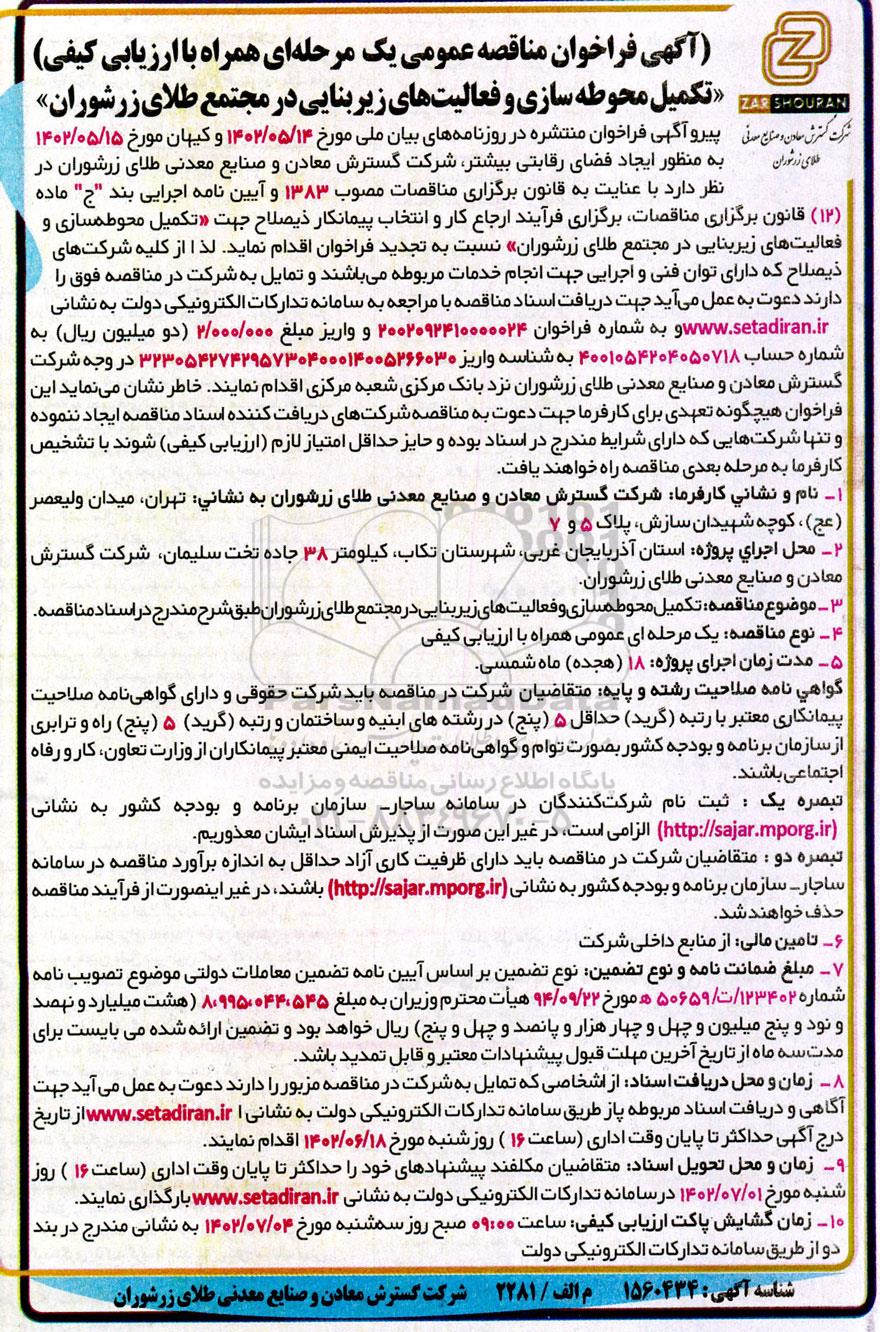 (آگهی فراخوان مناقصه عمومی یک مرحله‌ای همراه با ارزیابی کیفی)
«تکمیل محوطه سازی و فعالیت‌های زیربنایی در مجتمع طلای زرشوران»
ZARSHOURAN
شرکت گسترش معادن و صنایع معدنی
طلای زرشوران
پیرو آگهی فراخوان منتشره در روزنامه‌های بیان ملی مورخ ۱۴۰۲/۰۵/۱۴ و کیهان مورخ ۱۴۰۲/۰۵/۱۵
به منظور ایجاد فضای رقابتی بیشتر، شرکت گسترش معادن و صنایع معدنی طلای زرشوران در
نظر دارد با عنایت به قانون برگزاری مناقصات مصوب ۱۳۸۳ و آیین نامه اجرایی بند "ج" ماده
(۱۲) قانون برگزاری مناقصات، برگزاری فرآیند ارجاع کار و انتخاب پیمانکار ذیصلاح جهت «تکمیل محوطه‌سازی و
فعالیت‌های زیربنایی در مجتمع طلای زرشوران» نسبت به تجدید فراخوان اقدام نماید. لذا از کلیه شرکت‌های
ذیصلاح که دارای توان فنی و اجرایی جهت انجام خدمات مربوطه می‌باشند و تمایل به شرکت در مناقصه فوق را
دارند دعوت به عمل می‌آید جهت دریافت اسناد مناقصه با مراجعه به سامانه تدارکات الکترونیکی دولت به نشانی
www.setadiran.ir و به شماره فراخوان ۲۰۰۲۰۹۲۴۱۰۰۰۰۰۲۴ و واریز مبلغ ۲/۰۰۰/۰۰۰ (دو میلیون ریال) به
شماره حساب ۴۰۰۱۰۵۴۲۰۴۰۵۰۷۱۸ به شناسه واریز ۳۲۳۰۵۴۲۷۴۲۹۵۷۳۰۴۰۰۰۱۴۰۰۵۲۶۶۰۳۰ در وجه شرکت
گسترش معادن و صنایع معدنی طلای زرشوران نزد بانک مرکزی شعبه مرکزی اقدام نمایند. خاطر نشان می‌نماید این
فراخوان هیچگونه تعهدی برای کارفرما جهت دعوت به مناقصه شرکت‌های دریافت کننده اسناد مناقصه ایجاد ننموده
و تنها شرکت‌هایی که دارای شرایط مندرج در اسناد بوده و حایز حداقل امتیاز لازم (ارزیابی کیفی) شوند با تشخیص
کارفرما به مرحله بعدی مناقصه راه خواهند یافت.
۱ـ نام و نشانی کارفرما: شرکت گسترش معادن و صنایع معدنی طلای زرشوران به نشانی: تهران، میدان ولیعصر
(عج)، کوچه شهیدان سازش، پلاک ۵ و ۷
۲ـ محل اجرای پروژه: استان آذربایجان غربی، شهرستان تکاب، کیلومتر ۳۸ جاده تخت سلیمان، شرکت گسترش
معادن و صنایع معدنی طلای زرشوران.
۳ـ موضوع مناقصه: تکمیل محوطه‌سازی و فعالیت‌های زیربنایی در مجتمع طلای زرشوران طبق شرح مندرج در اسناد مناقصه.
۴ـ نوع مناقصه: یک مرحله ای عمومی همراه با ارزیابی کیفی
۵ـ مدت زمان اجرای پروژه: ۱۸ (هجده) ماه شمسی.
گواهی نامه صلاحیت رشته و پایه: متقاضیان شرکت در مناقصه باید شرکت حقوقی و دارای گواهی‌نامه صلاحیت
پیمانکاری معتبر با رتبه (گرید) حداقل ۵ (پنج) در رشته های ابنیه و ساختمان و رتبه (گرید) ۵ (پنج) راه و ترابری
از سازمان برنامه و بودجه کشور بصورت توام و گواهی‌نامه صلاحیت ایمنی معتبر پیمانکاران از وزارت تعاون، کار و رفاه
اجتماعی باشند.
تبصره یک : ثبت نام شرکت‌کنندگان در سامانه ساجار- سازمان برنامه و بودجه کشور به نشانی
(http://sajar.mporg.ir) الزامی است، در غیر این صورت از پذیرش اسناد ایشان معذوریم.
تبصره دو : متقاضیان شرکت در مناقصه باید دارای ظرفیت کاری آزاد حداقل به اندازه برآورد مناقصه در سامانه
ساجار- سازمان برنامه و بودجه کشور به نشانی (http://sajar.mporg.ir) باشند، در غیر اینصورت از فرآیند مناقصه
حذف خواهند شد.
۶ـ تامین مالی: از منابع داخلی شرکت
۷ـ مبلغ ضمانت نامه و نوع تضمین: نوع تضمین بر اساس آیین نامه تضمین معاملات دولتی موضوع تصویب نامه
شماره ۱۲۳۴۰۲/ت/۵۰۶۵۹ ه مورخ ۹۴/۰۹/۲۲ هیأت محترم وزیران به مبلغ ۸،۹۹۵،۰۴۴،۵۴۵ (هشت میلیارد و نهصد
و نود و پنج میلیون و چهل و چهار هزار و پانصد و چهل و پنج) ریال خواهد بود و تضمین ارائه شده می بایست برای
مدت سه ماه از تاریخ آخرین مهلت قبول پیشنهادات معتبر و قابل تمدید باشد.
۸ـ زمان و محل دریافت اسناد: از اشخاصی که تمایل به شرکت در مناقصه مزبور را دارند دعوت به عمل می آید جهت
آگاهی و دریافت اسناد مربوطه پاز طریق سامانه تدارکات الکترونیکی دولت به نشانی www.setadiran.ir ا از تاریخ
درج آگهی حداکثر تا پایان وقت اداری (ساعت ۱۶ ) روز شنبه مورخ ۱۴۰۲/۰۶/۱۸ اقدام نمایند.
۹ـ زمان و محل تحویل اسناد: متقاضیان مکلفند پیشنهادهای خود را حداکثر تا پایان وقت اداری (ساعت ۱۶ ) روز
شنبه مورخ ۱۴۰۲/۰۷/۰۱ در سامانه تدارکات الکترونیکی دولت به نشانی www.setadiran.ir بارگذاری نمایند.
۱۰ـ زمان گشایش پاکت ارزیابی کیفی: ساعت ۰۹:۰۰ صبح روز سه‌شنبه مورخ ۱۴۰۲/۰۷/۰۴ به نشانی مندرج در بند
دو از طریق سامانه تدارکات الکترونیکی دولت
شناسه آگهی: ۱۵۶۰۴۳۴ م الف / ۲۲۸۱ شرکت گسترش معادن و صنایع معدنی طلای زرشوران
ParsNamadData
پایگاه اطلاع رسانی مناقصه و مزایده
۰۲۱-۸۸۳۴۹۶۷۰-۵